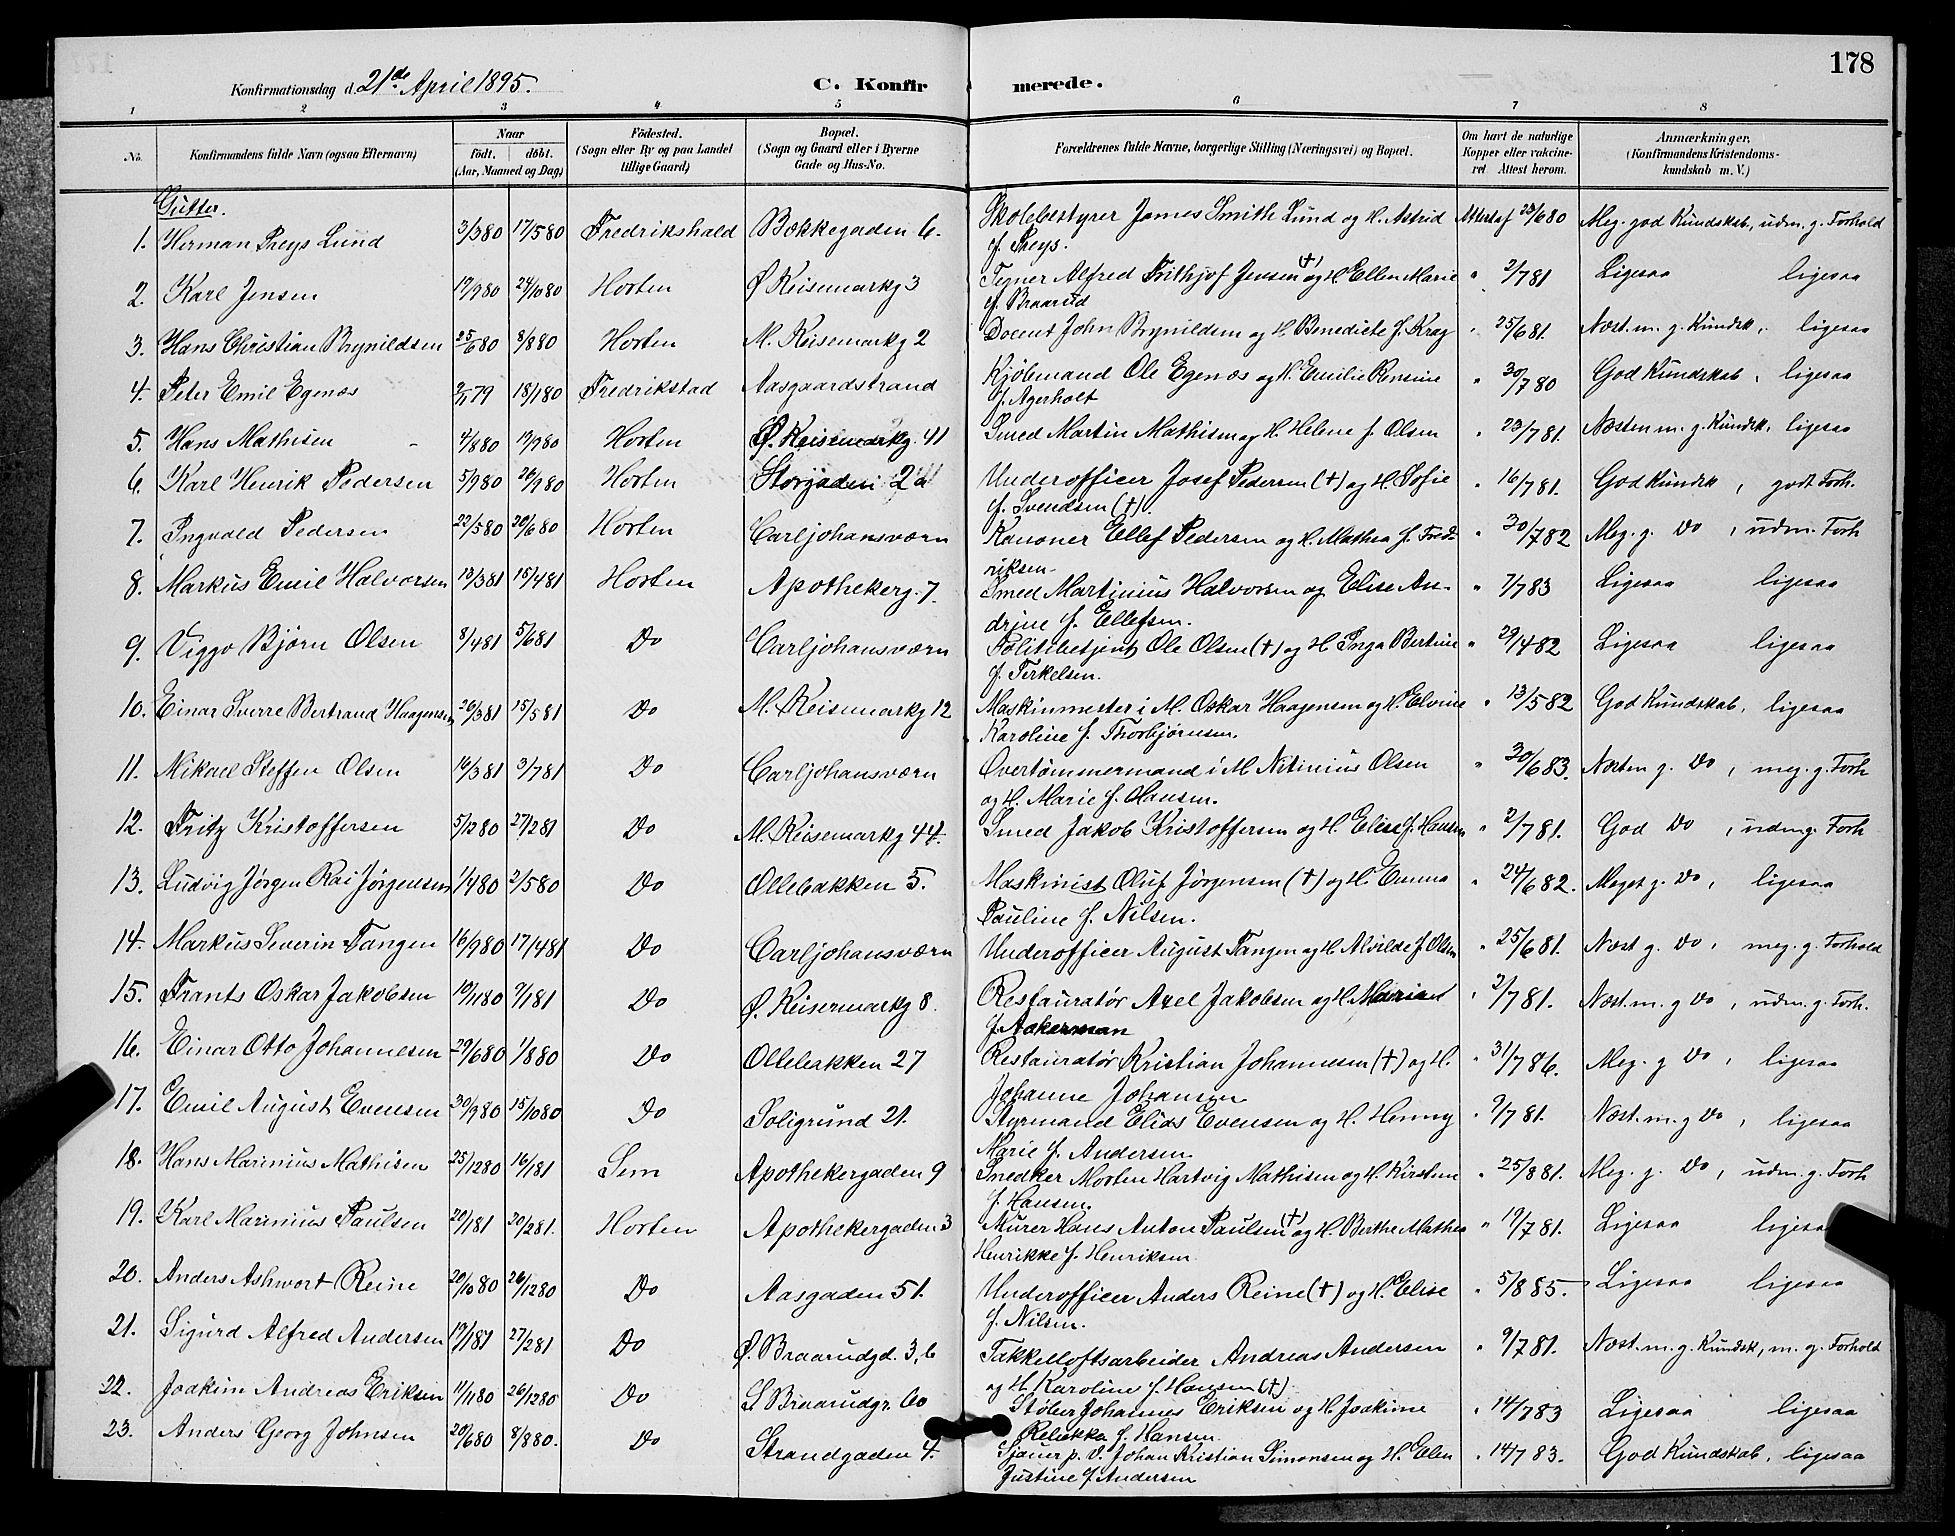 178
Konfirmationsdag d. 21de April 1895. C. Konfirmerede.
1 2 3 4 5 6 7 8
No. Konfirmandens fulde Navn (ogsaa Efternavn) Naar födt. döbt. (Aar, Maaned og Dag) Födested. (Sogn eller By og paa Landet tillige Gaard) Bopæl. (Sogn og Gaard eller i Byerne Gade og Hus-No. Forældrenes fulde Navne, borgerlige Stilling (Næringsvei) og Bopæl. Om havt de naturlige Kopper eller vakcineret Attest herom. Anmærkninger, (Konfirmandens Kristendomskundskab m. V.)
Gutter.
1. Herman Preys Lund 3/3 80 17/5 80 Fredrikshald Bokkegaden 6. Skolebestyrer James Smith Lund og H. Astrid Attest af 23/6 80 Meg. god Kundskab, udm. g. Forhold
f. Preys.
2. Karl Jensen 17/9 80 24/10 80 Horten Ø Keisemarkg 3 Tegner Alfred Frithjof Jensen (+) og H. Ellen Marie " 2/7 81 Ligesaa ligesaa
f. Braarud
3. Hans Christian Brynildsen 25/6 80 8/8 80 Horten M. Keisemarkg 2 Docent John Brynildsen og H. Benedicte f. Krag " 25/6 81. Næst. m. g. Kundsk, ligesaa
4. Peter Emil Egenæs 79 18/1 80 Fredrikstad Aasgaardstrand Kjøbmand Ole Egenæs og H. Emilie Rensine " 30/7 80 God Kundskab, ligesaa
f. Agerholt
5. Hans Mathisen 4/8 80 19/9 80 Horten Ø. Keisemarkg. 41 Smed Martin Mathisen og H. Helene f. Olsen " 23/7 81. Næsten m. g. Kundsk, ligesaa
6. Karl Henrik Pedersen 5/9 80 26/9 80 Horten Storgaden Underofficer Josef Pedersen (+) og H. Sofie " 16/7 81. God Kundsk, godt Forh.
f. Svendsen (+).
7. Ingvald Pedersen 22/5 80 20/6 80 Horten Carljohansværn Kanoner Ellef Pedersen og H. Mathea f. Fred- " 30/7 82 Meg. g. Do, udm. Forh
riksen.
8. Markus Emil Halvorsen 13/3 81 15/4 81 Horten Apothekerg. 7. Smed Martinius Halvorsen og Elise An- " 7/7 83 Ligesaa ligesaa
drine f. Ellefsen.
9. Viggo Bjørn Olsen 8/4 81 5/6 81 Do Carljohansværn Politibetjent Ole Olsen (+) og H. Inga Bertine " 29/4 82 Ligesaa ligesaa
f. Terkelsen.
10. Einar Sverre Bertrand Haagensen 26/3 81 15/5 81 Do M. Keisemarkg 12 Maskinmester i M. Oskar Haagensen og H. Elvine " 13/5 82 God Kundskab, ligesaa
Karoline f. Thorbjørnsen.
11. Mikael Steffen Olsen 16/3 81 3/7 81 Do Carljohansværn Overtømmermand i M Nitinius Olsen " 30/6 83. Næsten g. Do, meg. g. Forh
og H. Marie f. Hansen.
12. Fritz Kristoffersen 5/12 80 27/2 81 Do M. Keisemarkg 44. Smed Jakob Kristoffersen og H. Elise f. Hansen " 2/7 81. God Do, udm g. Forh
13. Ludvig Jørgen Rai Jørgensen 1/4 80 2/5 80 Do Ollebakken 5. Maskinist Oluf Jørgensen (+) og H. Emma " 24/6 82. Meget g. Do, ligesaa
Pauline f. Nilsen.
14. Markus Severin Tangen 16/9 80 17/4 81 Do Carljohansværn Underofficer August Tangen og H. Alvilde f. Olsen " 25/6 81. Næst g. Do, meg. g. Forhold
15. Frants Oskar Jakobsen 19/11 80 9/1 81 Do Ø. Keisermarkg 8. Restauratør Axel Jakobsen og H. " 2/7 81. Næst. m. g Do, udm. g. Forh.
f. Aakerman
16. Einar Otto Johannesen 29/6 80 1/8 80 Do Ollebakken 27 Restauratør Kristian Johannesen (+) og H. " 31/7 86. Meg. g Do, ligesaa
Johanne Johansen
17. Emil August Evensen 30/9 80 15/10 80 Do Poligrund 21. Styrmand Elias Evensen og H. Henny " 9/7 81. Næst. m. g Do, ligesaa
Marie f. Andersen
18. Hans Marinius Mathisen 25/12 80 16/1 81 Sem Apothekergaden 9 Snedker Morten Hartvig Mathisen og H. Kirstine " 25/8 81. Meg. g. Do, udm. g. Forh
f. Hansen.
19. Karl Marinius Paulsen 20/1 81 20/2 81. Horten Apothekergaden 3 Murer Hans Anton Paulsen (+) og H. Berthe Mathea " 19/7 81. Ligesaa ligesaa
Henrikke f. Henriksen
20. Anders Ashwort Reine 20/10 80 26/12 80 Do Aasgaden 51. Underofficer Anders Reine (+) og H. Elise " 5/8 85. Ligesaa ligesaa
f. Nilsen.
21. Sigurd Alfred Andersen 19/1 81 27/2 81 Do Ø. Braarudgd. 3, b Takkelloftsarbeider Andreas Andersen " 9/7 81. Næst. m. g. Kundsk, m. g. Forhold
og H. Karoline f. Hansen (+)
22. Joakim Andreas Eriksen 11/11 80 26/12 80 Do S Braarudgr. 60 Støber Johannes Eriksen og H. Joakime " 14/7 83 Ligesaa ligesaa
Rebekka f. Hansen
23. Anders Georg Johnsen 20/6 80 8/8 80. Do Strandgaden 4. Sjauer p. V. Johan Kristian Simonsen og H. Elen " 14/7 83. God Kundskab, ligesaa
Justine f Andersen